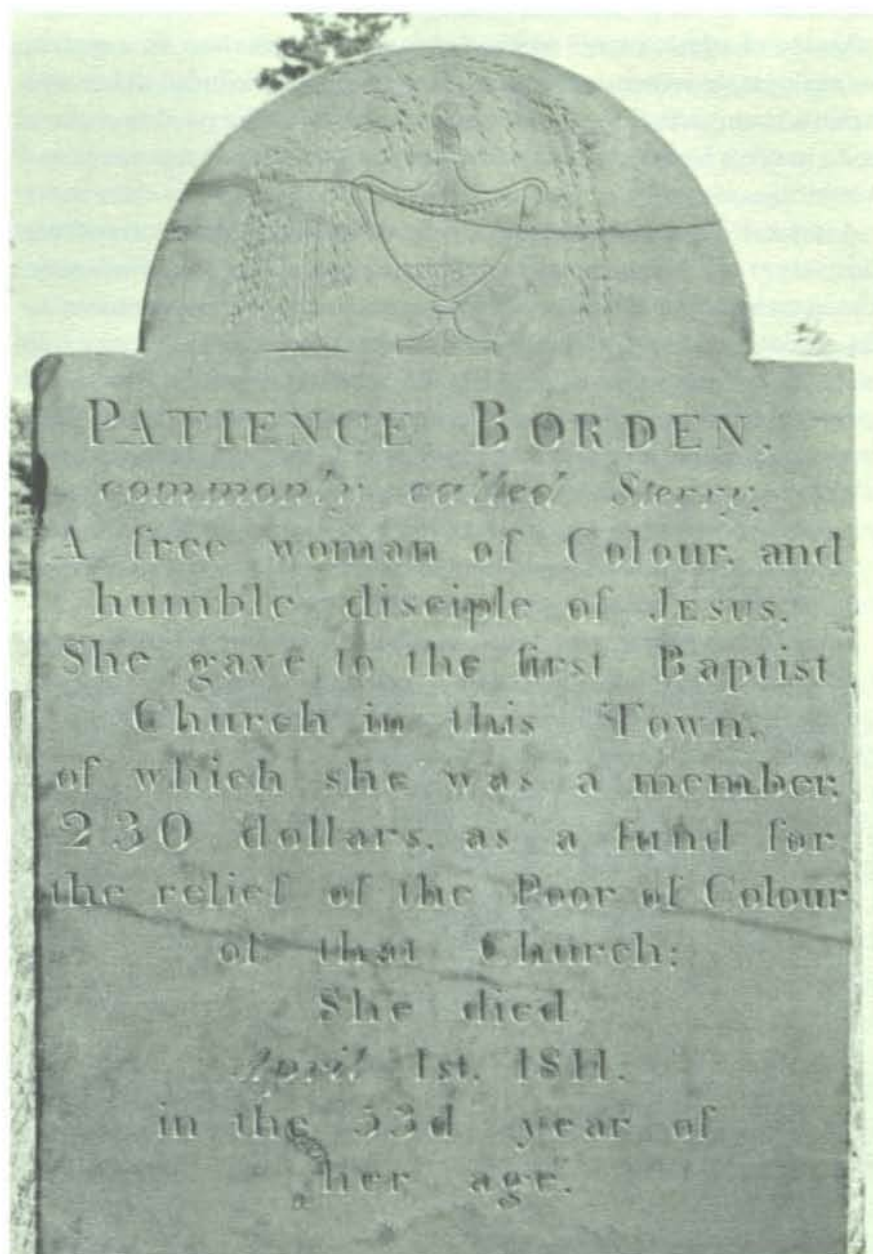 PATIENCE BORDEN,
commonly called Sterry,
A free woman of Colour, and
humble disciple of JESUS.
She gave to the first Baptist
Church in this Town,
of which she was a member,
230 dollars, as a fund for
the relief of the Poor of Colour
of that Church;
She died
April 1st. 1811.
in the 53d year of
her age.